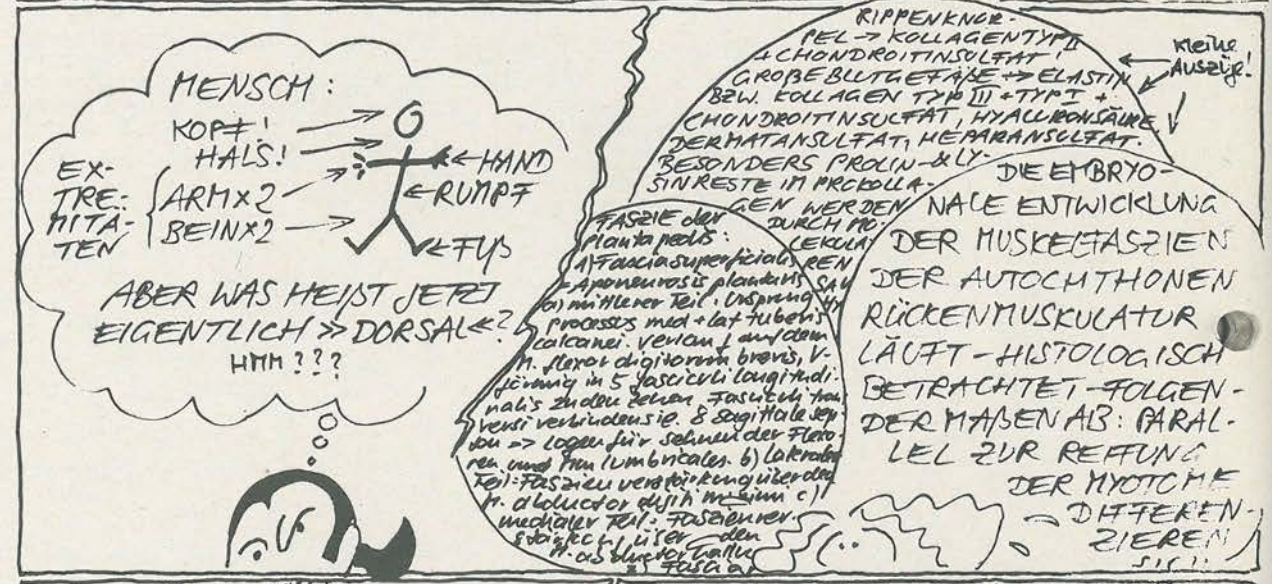 MENSCH:
KOPF!
HALS!
EX-
TRE-
MITÄ-
TEN
ARM×2
BEIN×2
HAND
RUMPF
FUß
ABER WAS HEIßT JETZT
EIGENTLICH »DORSAL«?
HMM???
RIPPENKNOR-
PEL → KOLLAGENTYP II
+ CHONDROITINSULFAT!
GROßE BLUTGEFÄßE → ELASTIN
BZW. KOLLAGEN TYP III + TYP I +
CHONDROITINSULFAT, HYALURONSÄURE
DERMATANSULFAT, HEPARANSULFAT.
BESONDERS PROLIN- & LY-
SINRESTE IM PROKOLLA-
GEN WERDEN
DURCH MO-
LEKULA-
REN
kleine
Auszüge!
FASZIE der
Planta pedis:
1) Fascia superficialis
= Aponeurosis plantaris
a) mittlerer Teil: Ursprung
processus med + lat tuberis
calcanei. Verlauf auf dem
M. flexor digitorum brevis, V-
förmig in 5 fasciculi longitudi-
nalis zu den Zehen. Fasciculi trans
versi verbinden sie. 8 sagittale sep-
ten => Logen für Sehnen der Flexo-
ren und Mm lumbricales. b) lateraler
Teil: Faszienverstärkung über den
M. abductor digiti minimi c)
medialer Teil: Faszienver-
über den
M. abductor hallu
Fascia
DIE EMBRYO-
NALE ENTWICKLUNG
DER MUSKELFASZIEN
DER AUTOCHTHONEN
RÜCKENMUSKULATUR
LÄUFT - HISTOLOGISCH
BETRACHTET - FOLGEN-
DERMAßEN AB: PARAL-
LEL ZUR REIFUNG
DER MYOTOME
DIFFEREN-
ZIEREN
SICH